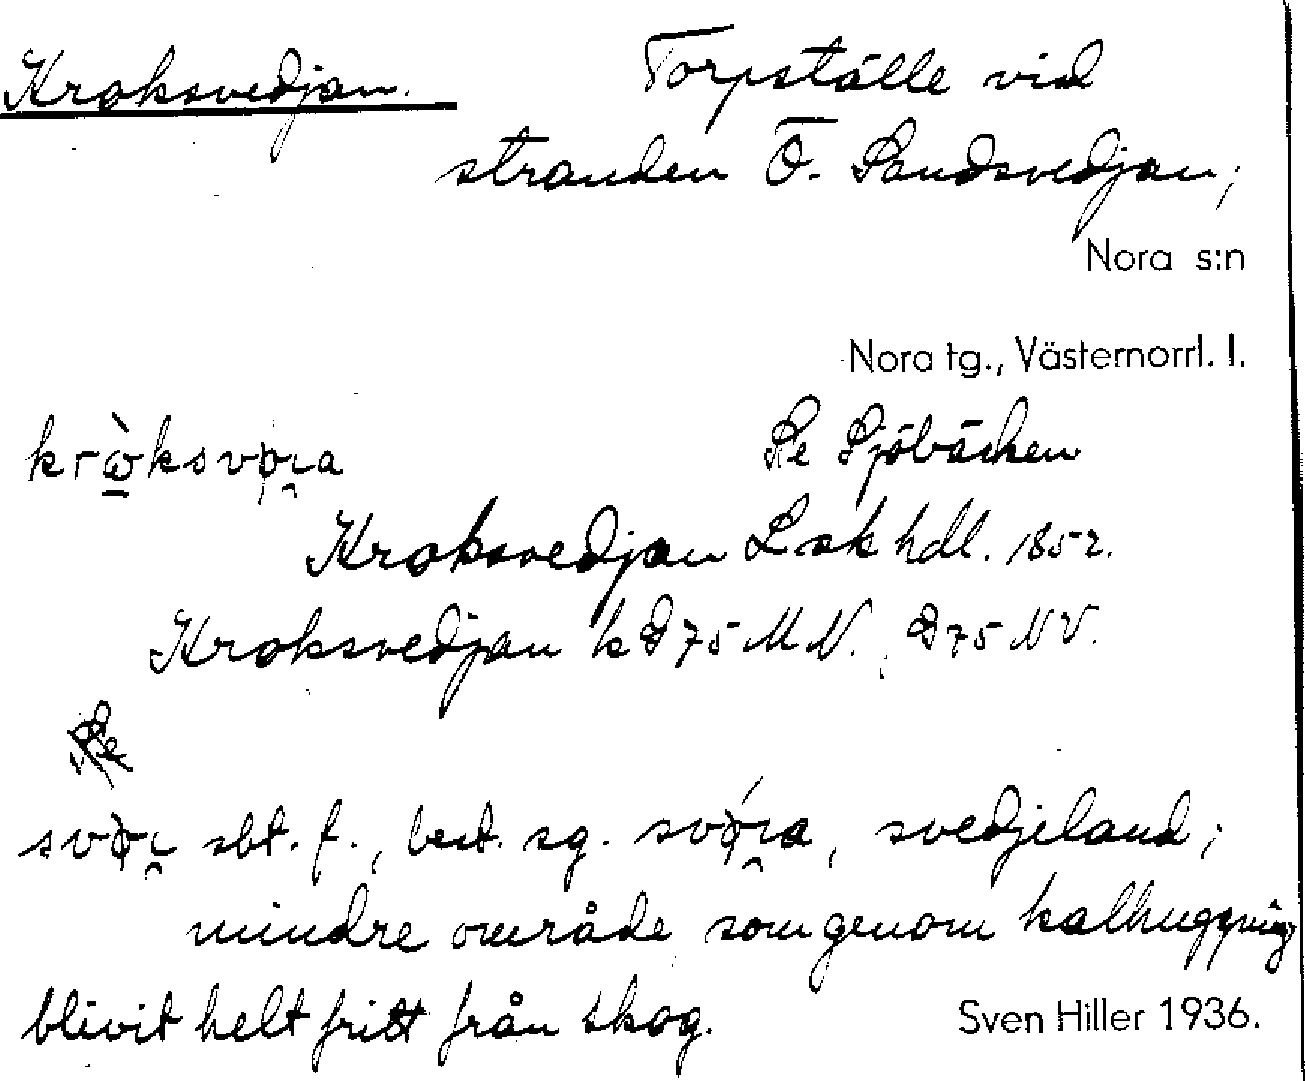 Kroksvedjan. Torpställe vid
stranden Ö. Sandsvedjan;
Nora s:n
Nora tg., Västernorrl. l.
Se Sjöbäcken
Kroksvedjan Lsk hdl. 1852.
Kroksvedjan k 75 NV. 75 NV.
Se
sbt. f., best. sg. svedjeland;
mindre område som genom kalhuggning
blivit helt fritt från skog.
Sven Hiller 1936.